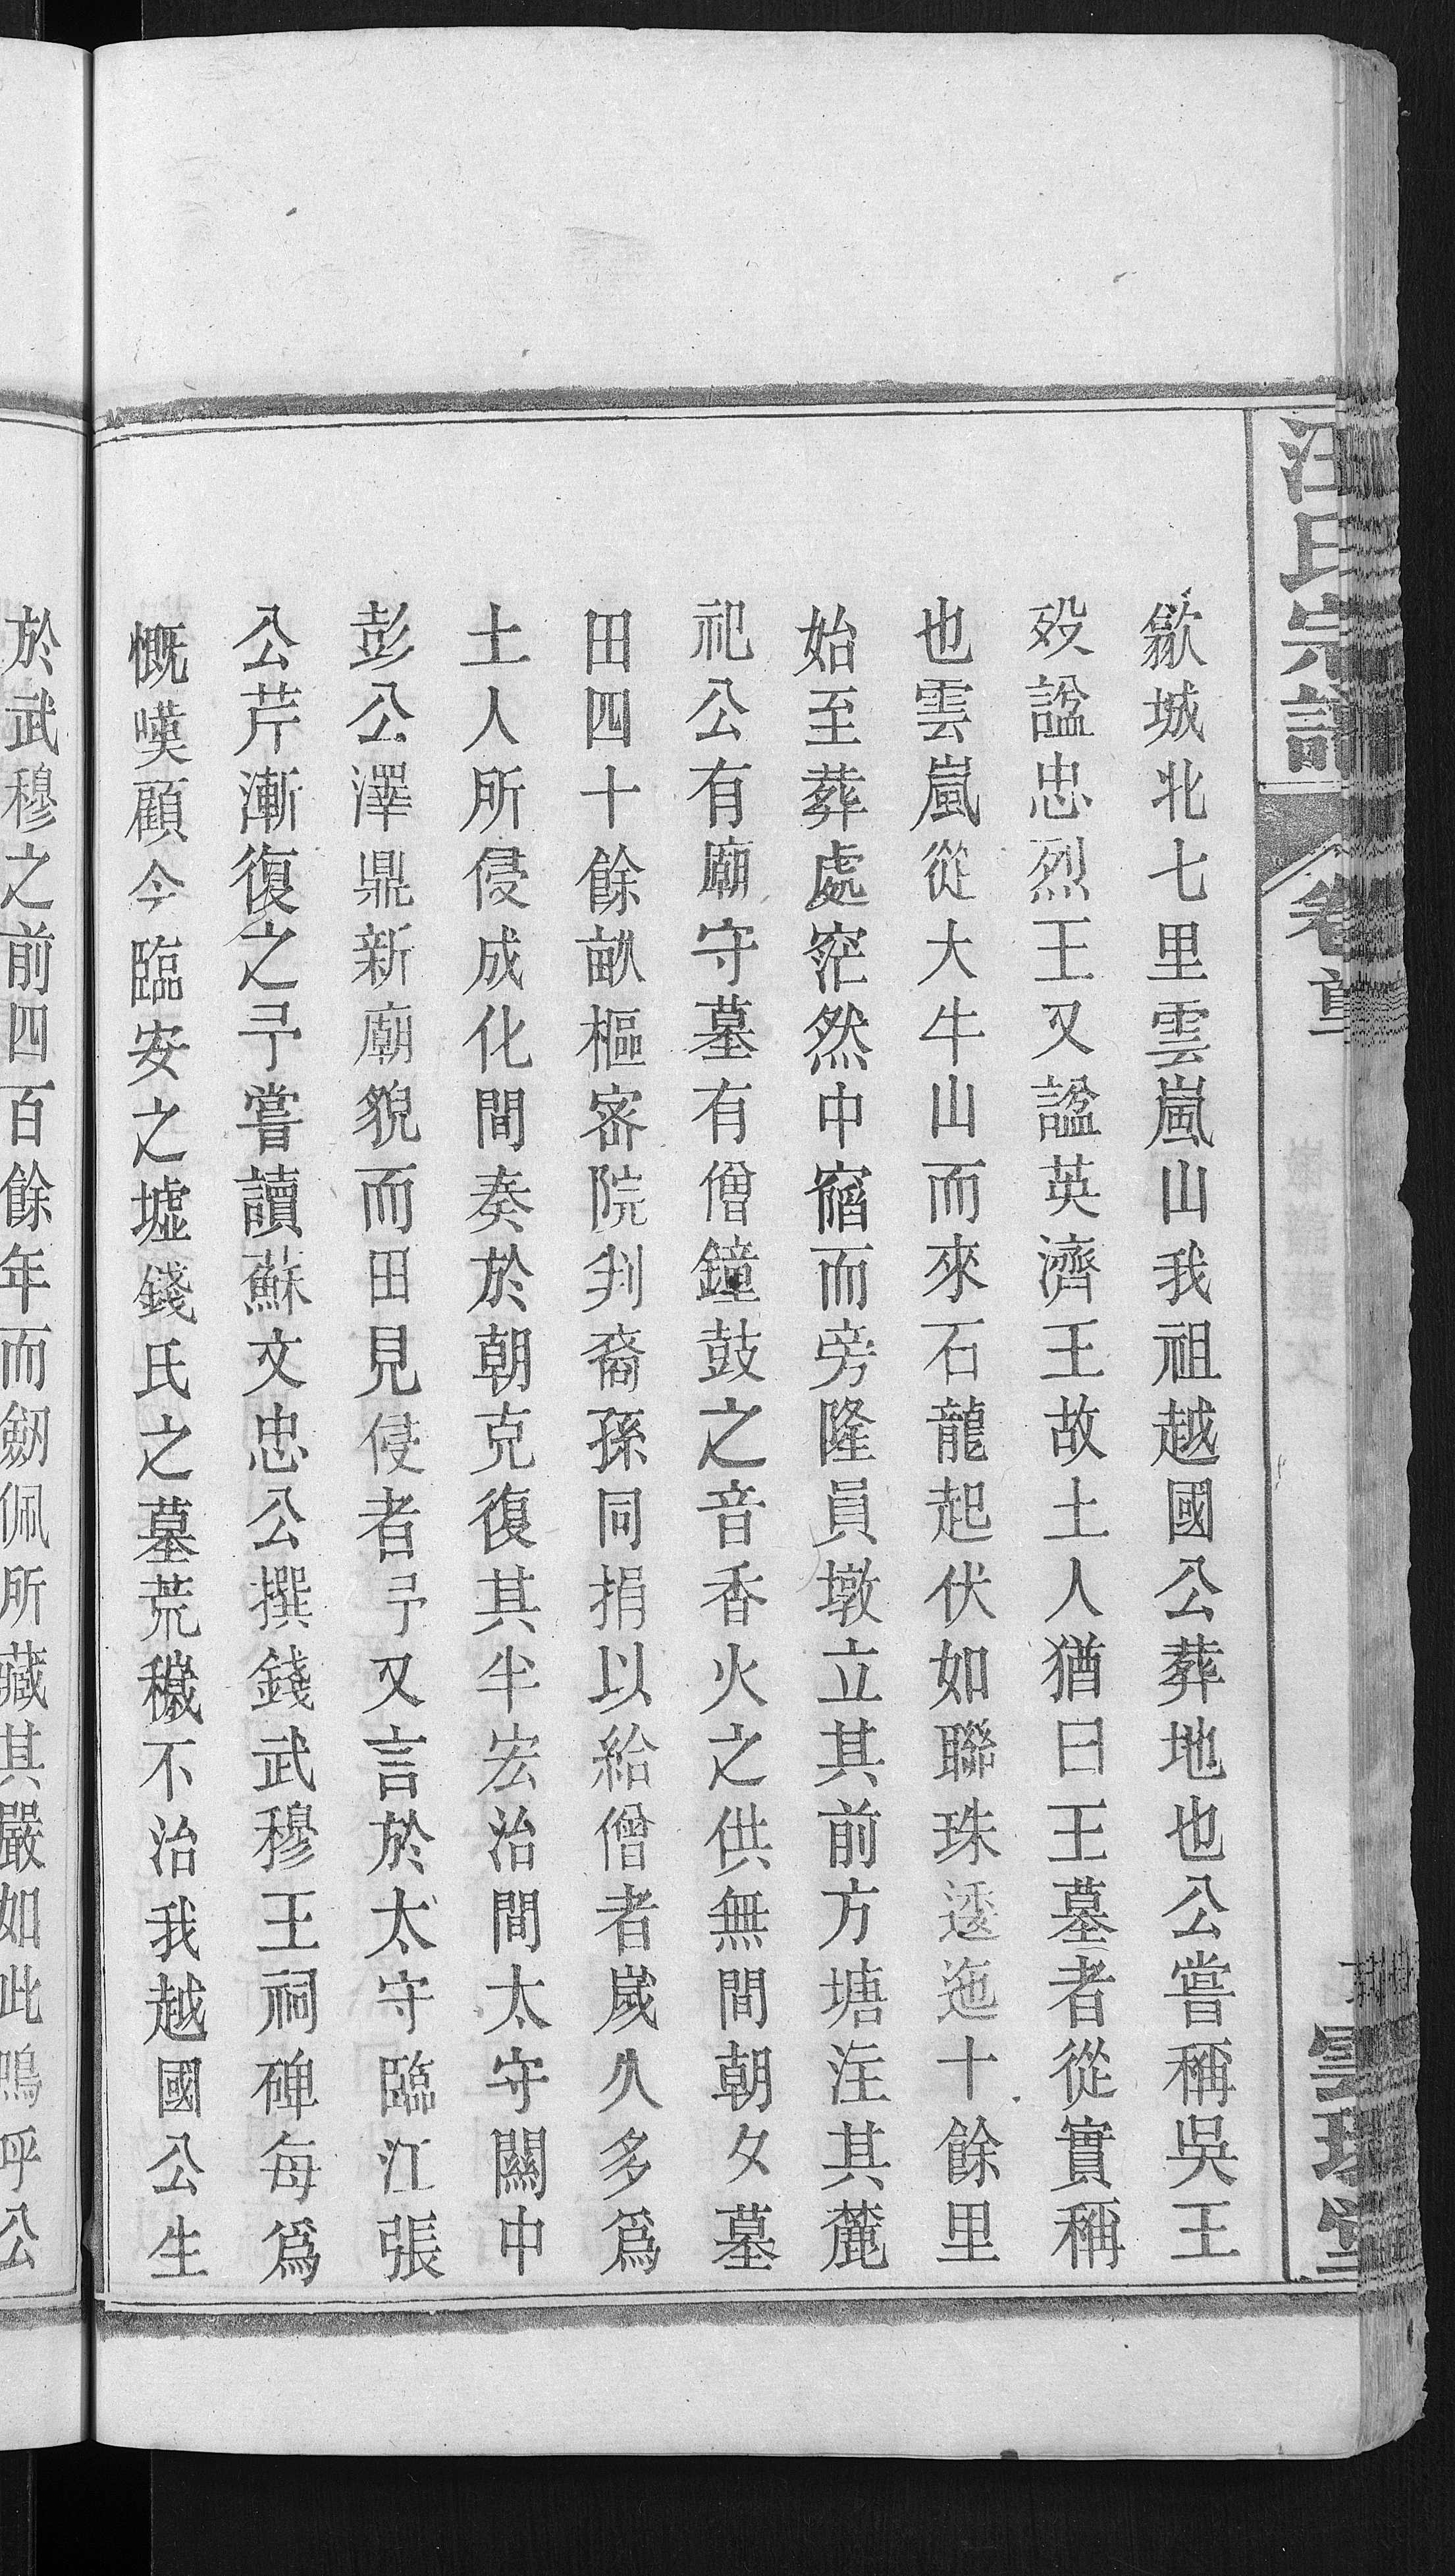 汪氏宗譜
卷首
歙城北七里雲嵐山我祖越國公葬地也公嘗稱吳王
歿諡忠烈王又諡英濟王故土人猶曰王墓者從實稱
也雲嵐從大牛山而來石龍起伏如聯珠逶迤十餘里
始至葬處窊然中窩而旁隆員墩立其前方塘注其麓
祀公有廟守墓有僧鐘鼓之音香火之供無間朝夕墓
田四十餘畝樞密院判裔孫同捐以給僧者歲久多爲
土人所侵成化間奏於朝克復其半宏治間太守關中
彭公澤鼎新廟貌而田見侵者予又言於太守臨江張
公芹漸復之予嘗讀蘇文忠公撰錢武穆王祠碑每爲
慨嘆顧今臨安之墟錢氏之墓荒穢不治我越國公生
於武穆之前四百餘年而劒佩所藏其嚴如此嗚呼公